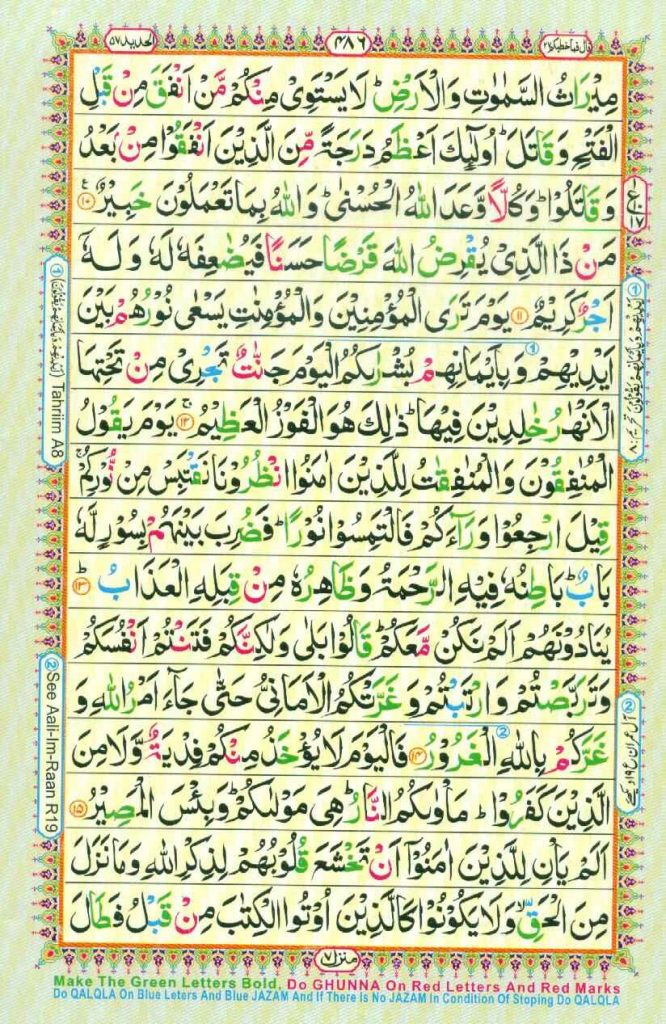 قال فما خطبكم ٢٧
٤٨٦
الحديد ٥٧
مِيْرَاثُ السَّمٰوٰتِ وَالْاَرْضِ ؕ لَا يَسْتَوِىْ مِنْكُمْ مَّنْ اَنْفَقَ مِنْ قَبْلِ
الْفَتْحِ وَقَاتَلَ ؕ اُولٰٓئِكَ اَعْظَمُ دَرَجَةً مِّنَ الَّذِيْنَ اَنْفَقُوْا مِنْۢ بَعْدُ
وَقَاتَلُوْا ؕ وَكُلًّا وَّعَدَ اللّٰهُ الْحُسْنٰى ؕ وَاللّٰهُ بِمَا تَعْمَلُوْنَ خَبِيْرٌ ﴿۱۰﴾
مَنْ ذَا الَّذِىْ يُقْرِضُ اللّٰهَ قَرْضًا حَسَنًا فَيُضٰعِفَهٗ لَهٗ وَلَهٗۤ
اَجْرٌ كَرِيْمٌ ﴿۱۱﴾ يَوْمَ تَرَى الْمُؤْمِنِيْنَ وَالْمُؤْمِنٰتِ يَسْعٰى نُوْرُهُمْ بَيْنَ
اَيْدِيْهِمْ وَبِاَيْمَانِهِمْ بُشْرٰٮكُمُ الْيَوْمَ جَنّٰتٌ تَجْرِىْ مِنْ تَحْتِهَا
الْاَنْهٰرُ خٰلِدِيْنَ فِيْهَا ؕ ذٰلِكَ هُوَ الْفَوْزُ الْعَظِيْمُ ﴿۱۲﴾ يَوْمَ يَقُوْلُ
الْمُنٰفِقُوْنَ وَالْمُنٰفِقٰتُ لِلَّذِيْنَ اٰمَنُوا انْظُرُوْنَا نَقْتَبِسْ مِنْ نُّوْرِكُمْ ۚ
قِيْلَ ارْجِعُوْا وَرَآءَكُمْ فَالْتَمِسُوْا نُوْرًا ؕ فَضُرِبَ بَيْنَهُمْ بِسُوْرٍ لَّهٗ
بَابٌ ؕ بَاطِنُهٗ فِيْهِ الرَّحْمَةُ وَظَاهِرُهٗ مِنْ قِبَلِهِ الْعَذَابُ ؕ ﴿۱۳﴾
يُنَادُوْنَهُمْ اَلَمْ نَكُنْ مَّعَكُمْ ؕ قَالُوْا بَلٰى وَلٰكِنَّكُمْ فَتَنْتُمْ اَنْفُسَكُمْ
وَتَرَبَّصْتُمْ وَارْتَبْتُمْ وَغَرَّتْكُمُ الْاَمَانِىُّ حَتّٰى جَآءَ اَمْرُ اللّٰهِ وَ
غَرَّكُمْ بِاللّٰهِ الْغَرُوْرُ ﴿۱۴﴾ فَالْيَوْمَ لَا يُؤْخَذُ مِنْكُمْ فِدْيَةٌ وَّلَا مِنَ
الَّذِيْنَ كَفَرُوْا ؕ مَاْوٰٮكُمُ النَّارُ ؕ هِىَ مَوْلٰٮكُمْ ؕ وَبِئْسَ الْمَصِيْرُ ﴿۱۵﴾
اَلَمْ يَاْنِ لِلَّذِيْنَ اٰمَنُوْۤا اَنْ تَخْشَعَ قُلُوْبُهُمْ لِذِكْرِ اللّٰهِ وَمَا نَزَلَ
مِنَ الْحَقِّ ۙ وَلَا يَكُوْنُوْا كَالَّذِيْنَ اُوْتُوا الْكِتٰبَ مِنْ قَبْلُ فَطَالَ
منزل ٧
ع ١٧
① Tahriim A8
② See Aali-Im-Raan R19
Make The Green Letters Bold, Do GHUNNA On Red Letters And Red Marks
Do QALQLA On Blue Leters And Blue JAZAM And If There Is No JAZAM In Condition Of Stoping Do QALQLA